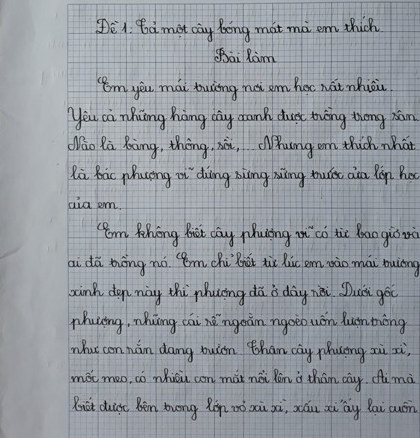 Đề 1: Tả một cây bóng mát mà em thích.
Bài làm
Em yêu mái trường nơi em học rất nhiều.
Yêu cả những hàng cây xanh được trồng trong sân.
Nào là bàng, thông, sồi,... Nhưng em thích nhất
là bác phượng vĩ đứng sừng sững trước cửa lớp học
của em.
Em không biết cây phượng vĩ có từ bao giờ và
ai đã trồng nó. Em chỉ biết từ lúc em vào mái trường
xinh đẹp này thì phượng đã ở đây rồi. Dưới gốc
phượng, những cái rễ ngoằn ngoèo uốn lượn trông
như con rắn đang trườn. Thân cây phượng xù xì,
mốc meo, có nhiều con mắt nổi lên ở thân cây. Ai mà
biết được bên trong lớp vỏ xù xì, xấu xí ấy lại cuồn